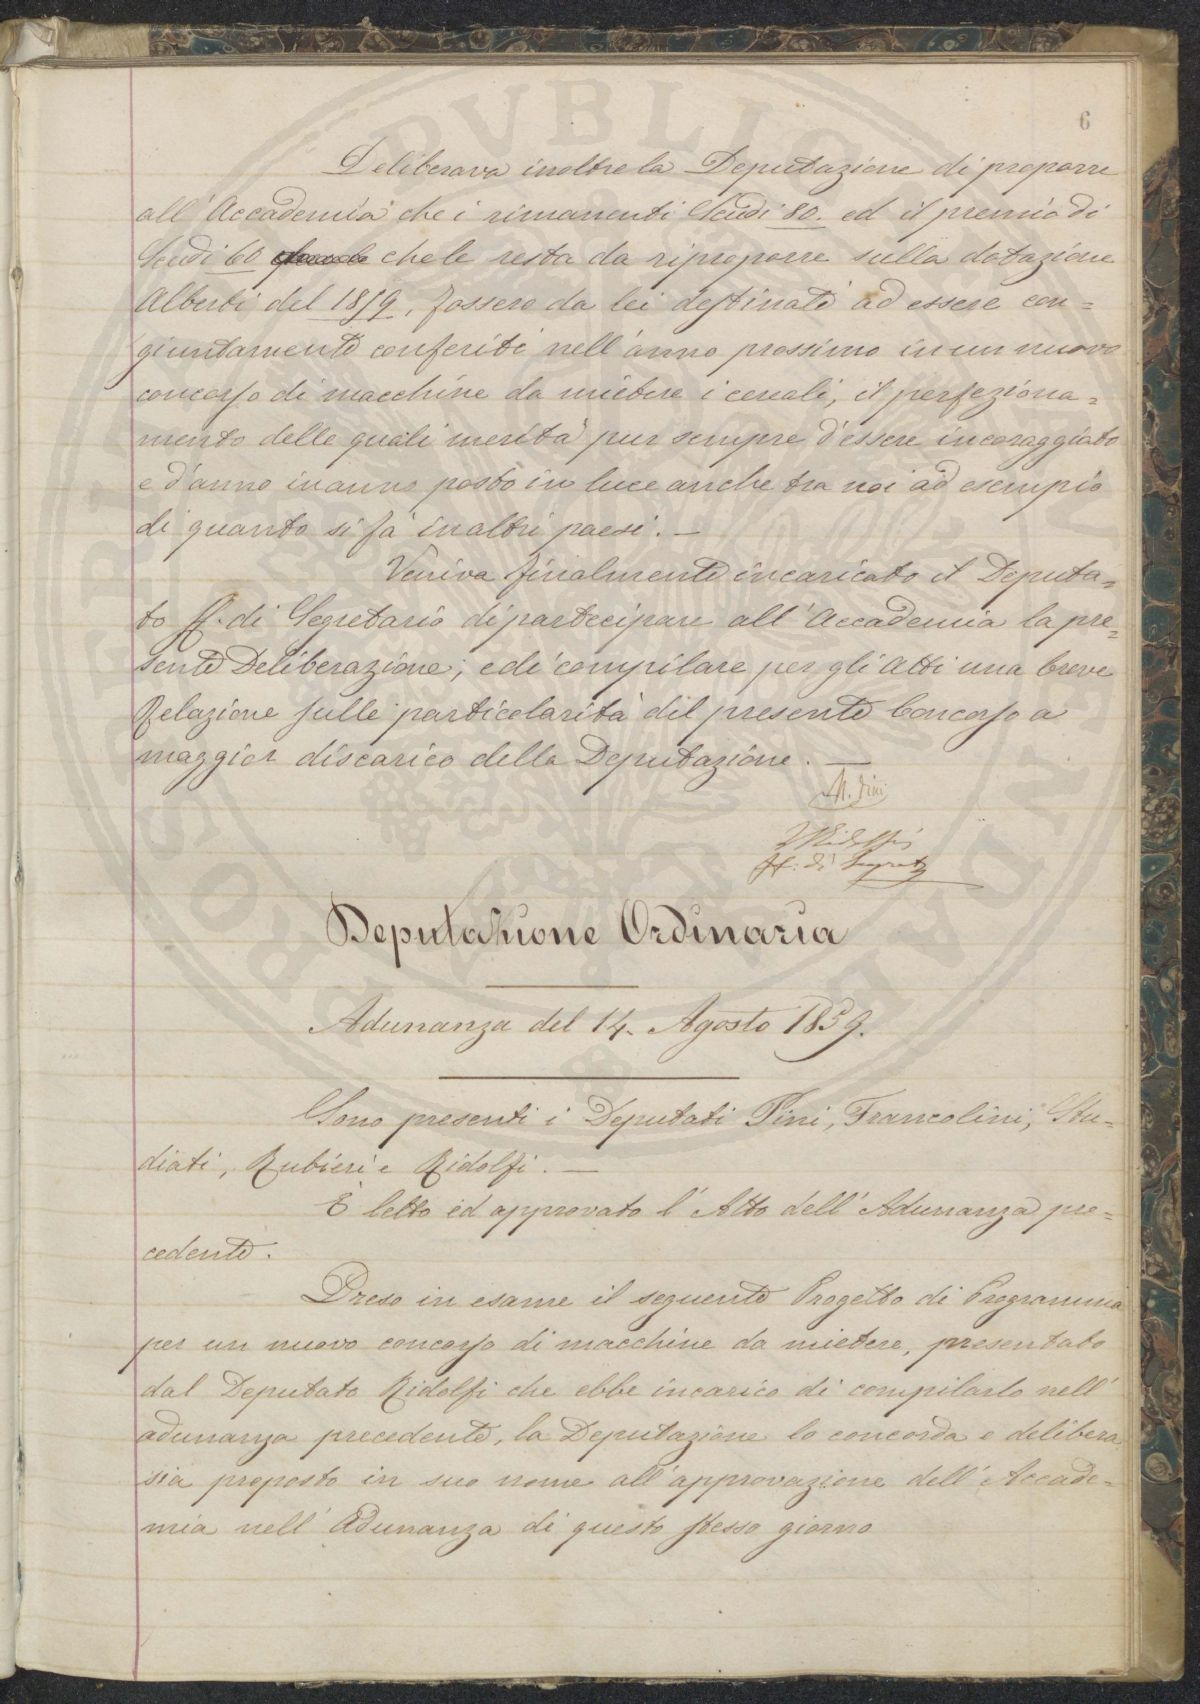 6
Deliberava inoltre la Deputazione di proporre
all'Accademia che i rimanenti Scudi 80. ed il premio di
Scudi 60 che le resta da riproporre sulla dotazione
Alberti del 1859, fossero da lei destinati ad essere con=
giuntamente conferiti nell'anno prossimo in un nuovo
concorso di macchine da mietere i cereali, il perfeziona=
mento delle quali merita pur sempre d'essere incoraggiato
e d'anno in anno posto in luce anche tra noi ad esempio
di quanto si fà in altri paesi. —
Veniva finalmente incaricato il Deputa=
to ff. di Segretario di partecipare all'Accademia la pre=
sente Deliberazione; e di compilare per gli Atti una breve
Relazione sulle particolarità del presente Concorso a
maggior discarico della Deputazione. —
Ridolfi
ff. di Segret
Deputazione Ordinaria
Adunanza del 14. Agosto 1859.
Sono presenti i Deputati Pini, Francolini, Stu=
diati, Rubieri e Ridolfi. —
È letto ed approvato l'Atto dell'Adunanza pre=
cedente.
Preso in esame il seguente Progetto di Programma
per un nuovo concorso di macchine da mietere, presentato
dal Deputato Ridolfi che ebbe incarico di compilarlo nell'
adunanza precedente, la Deputazione lo concorda e delibera
sia proposto in suo nome all'approvazione dell'Accade=
mia nell'Adunanza di questo stesso giorno